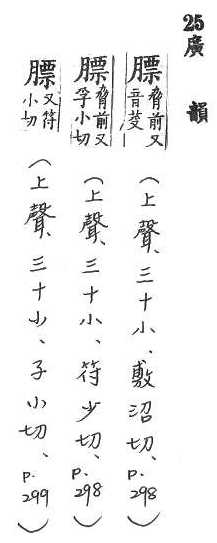 25 廣韻
膘 脅前又音（上聲、三十小、敷沼切、p.298）
膘 脅前又孚小切（上聲、三十小、符少切、p.298）
膘 又符小切（上聲、三十小、子小切、p.299）